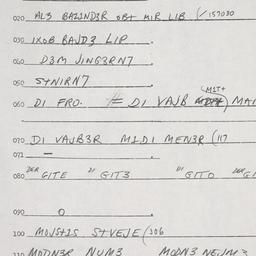 020 ALS BAZINDƷR OBT MIR LIB (✓157030
030 IXOB BAJDƷ LIP
040 DƷM JINGƷRN7
050 S+NIRN7
060 DI FRO. ≠ DI VAJB (MIT+ MAI
070 DI VAJBƷR MIDI MENƷR (117
071 —
080 DER GITE DI GITƷ DI GITO DER GI
090 O
100 MOJS+IS S+VEJE (106
110 MODNƷR NUMƷ MODNƷ NEJMƷ